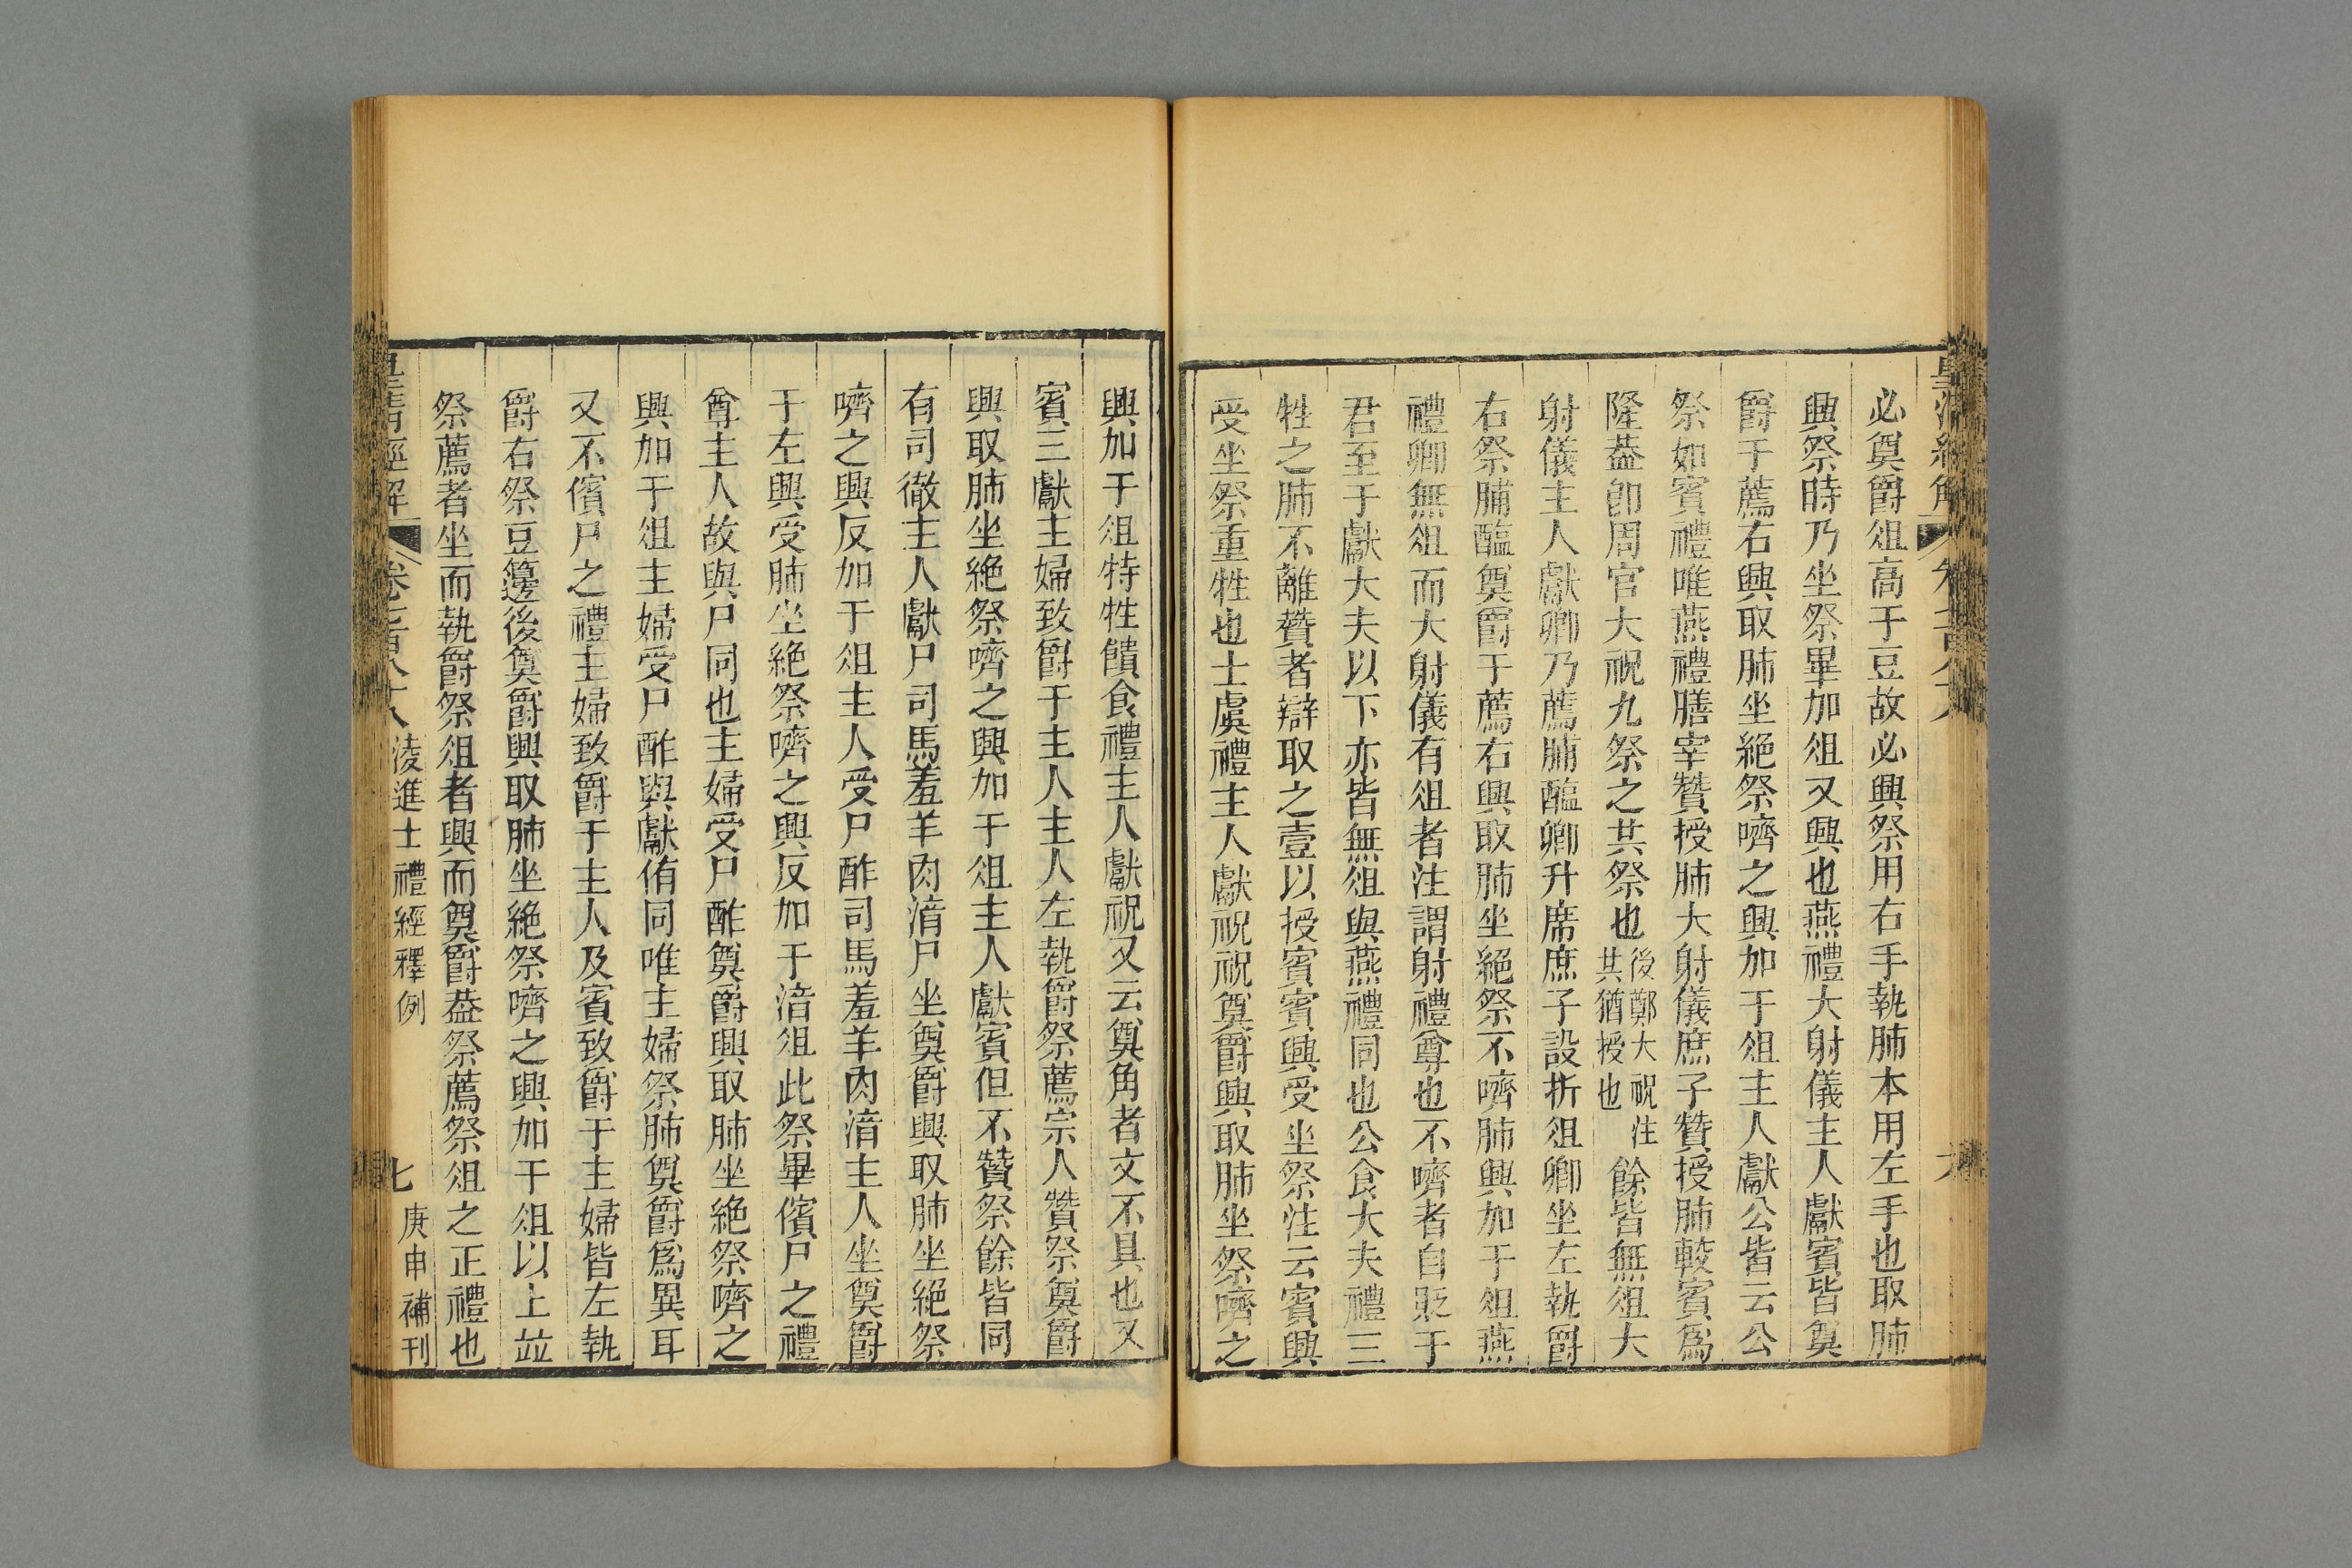 必奠爵俎高于豆故必興祭用右手執肺本用左手也取肺
興祭時乃坐祭畢加俎又興也燕禮大射儀主人獻賓皆奠
爵于薦右興取肺坐絶祭嚌之興加于俎主人獻公皆云公
祭如賓禮唯燕禮膳宰贊授肺大射儀庶子贊授肺較賓爲
隆葢卽周官大祝九祭之共祭也後鄭大祝注共猶授也餘皆無俎大
射儀主人獻卿乃薦脯醢卿升席庶子設折俎卿坐左執爵
右祭脯醢奠爵于薦右興取肺坐絕祭不嚌肺興加于俎燕
禮卿無俎而大射儀有俎者注謂射禮尊也不嚌者自貶于
君至于獻大夫以下亦皆無俎與燕禮同也公食大夫禮三
牲之肺不離贊者辯取之壹以授賓賓興受坐祭注云賓興
受坐祭重牲也士虞禮主人獻祝祝奠爵興取肺坐祭嚌之
興加于俎特牲饋食禮主人獻祝又云奠角者文不具也又
賓三獻主婦致爵于主人主人左執爵祭薦宗人贊祭奠爵
興取肺坐絶祭嚌之興加于俎主人獻賓但不贊祭餘皆同
有司徹主人獻尸司馬羞羊肉湆尸坐奠爵興取肺坐絕祭
嚌之興反加于俎主人受尸酢司馬羞羊肉湆主人坐奠爵
于左興受肺坐絶祭嚌之興反加于湆俎此祭畢儐尸之禮
尊主人故與尸同也主婦受尸酢奠爵興取肺坐絕祭嚌之
興加于俎主婦受尸酢與獻侑同唯主婦祭肺奠爵爲異耳
又不儐尸之禮主婦致爵于主人及賓致爵于主婦皆左執
爵右祭豆籩後奠爵興取肺坐絶祭嚌之興加于俎以上竝
祭薦者坐而執爵祭俎者興而奠爵葢祭薦祭俎之正禮也
皇清經解 卷七百八十八 淩進士禮經釋例 七 庚申補刊